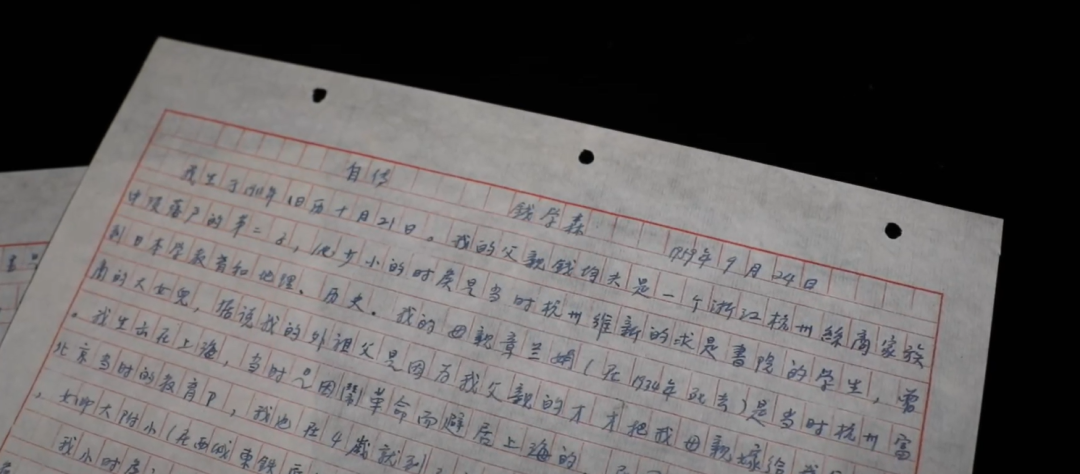 自传
钱学森
1959年9月24日
我生于1911年旧历十月21日。我的父親钱均夫是一个浙江杭州絲商家族
中没落户的第二子,他少小的时候是当时杭州維新的求是書院的学生,曾
到日本学教育和地理、历史。我的母親章兰娟(在1934年死去)是当时杭州富
商的大女兒,据说我的外祖父是因为我父親的才才把我母親嫁给
。我生在上海,当时是因闹革命而避居上海的
北京当时的教育户,我也在4歲就到
,女师大附小(在西城東鉄
我小时候